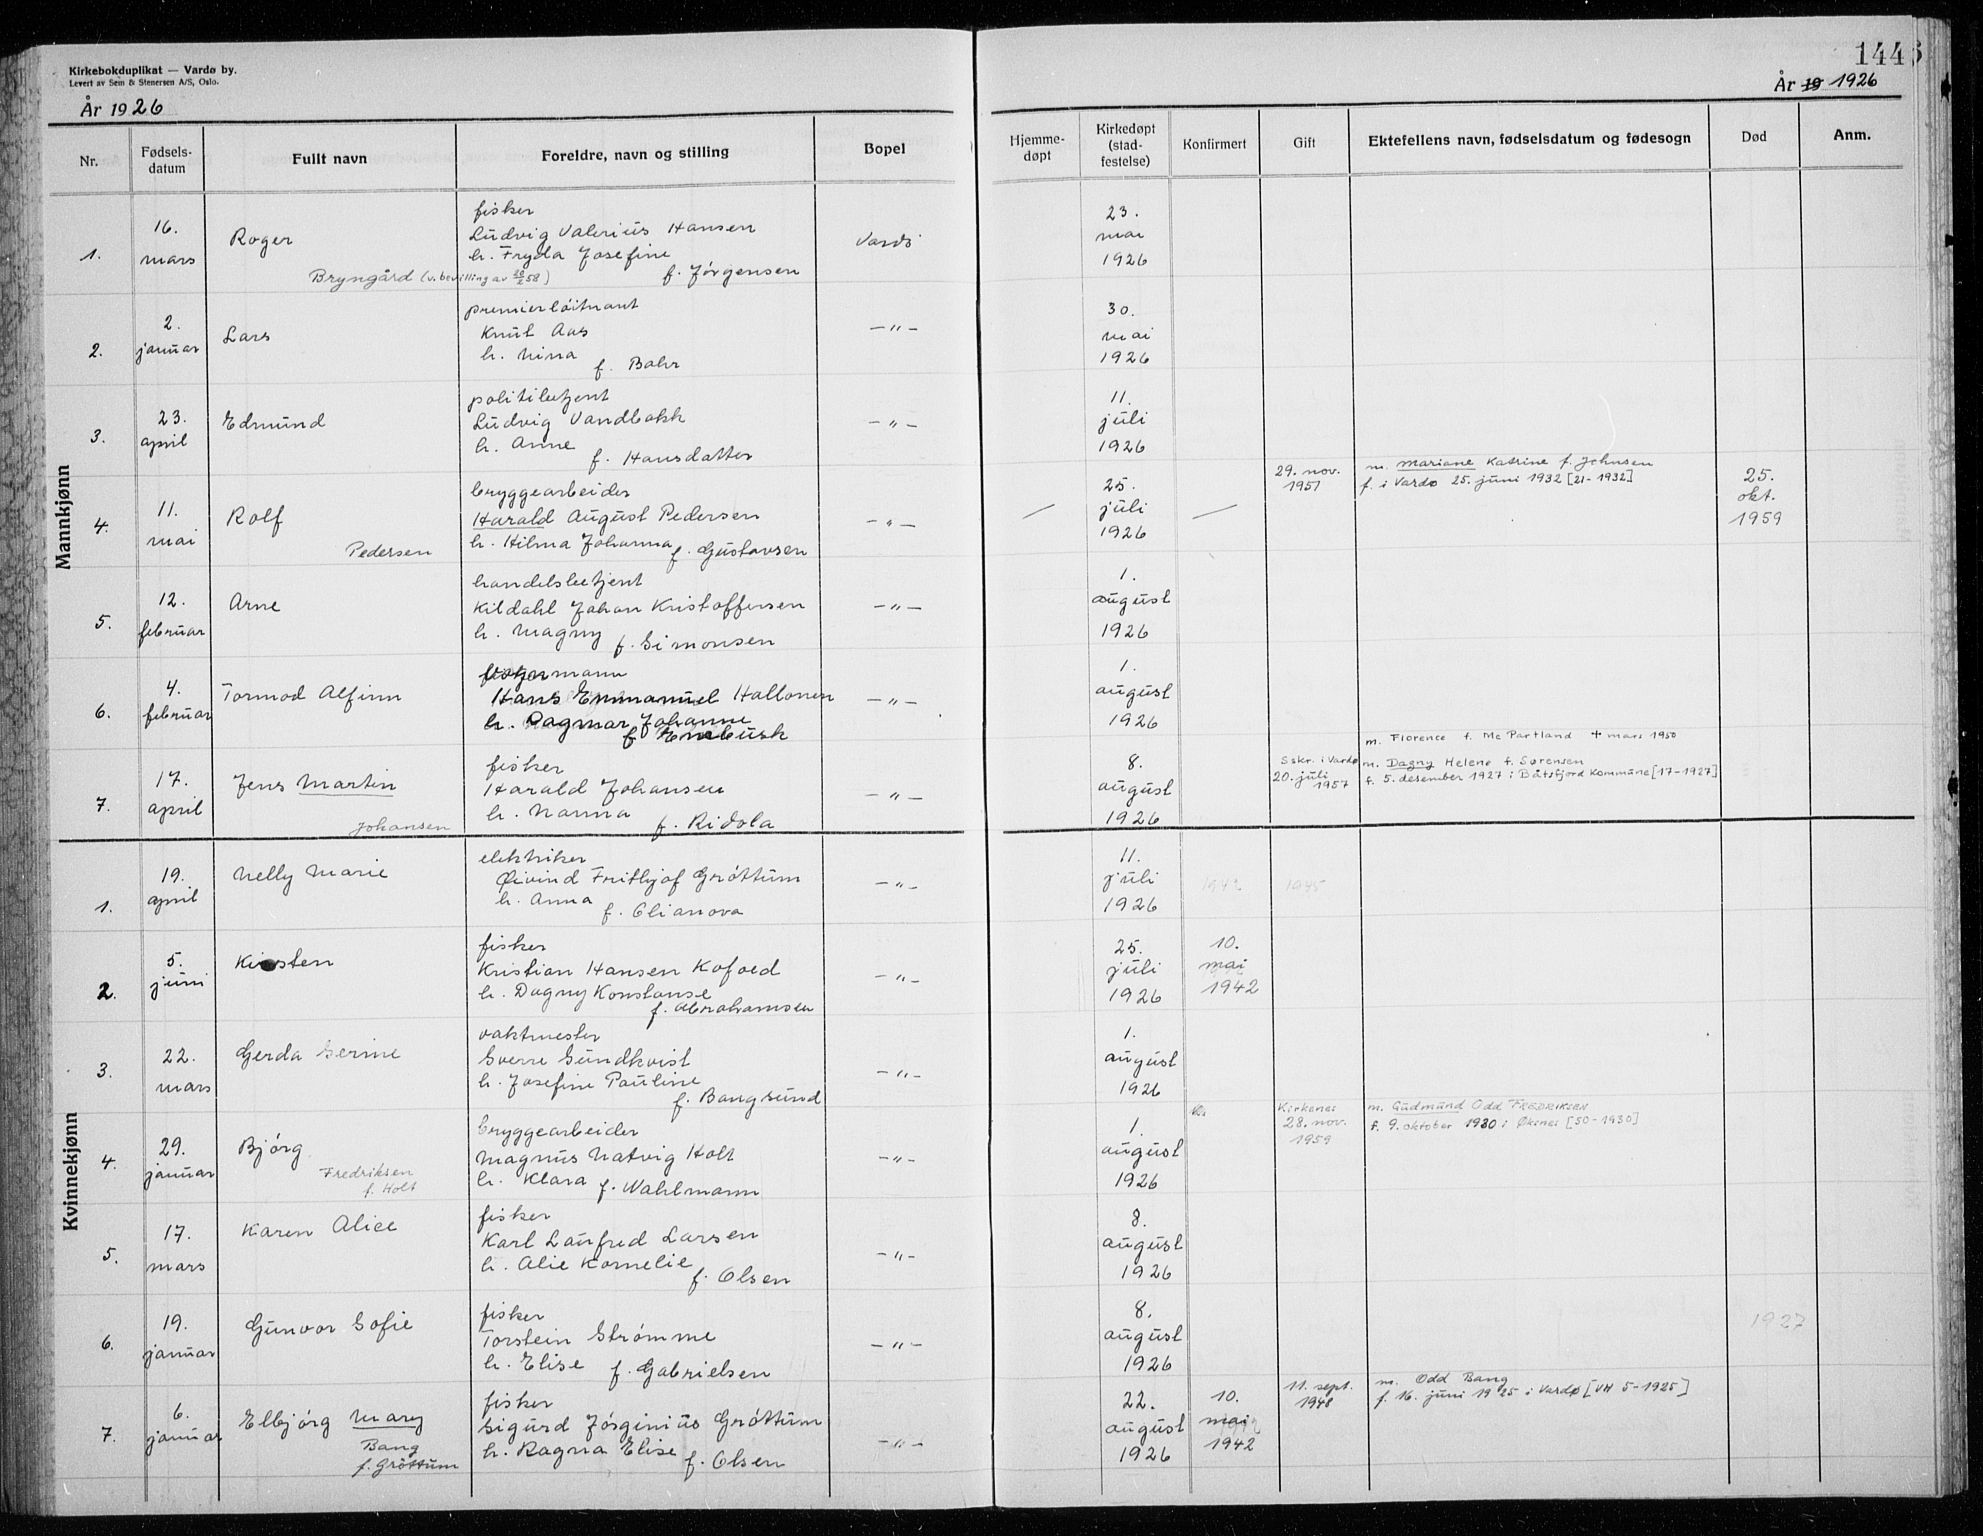 Kirkebokduplikat — Vardø by.
Levert av Sem & Stenersen A/S, Oslo.
År 1926
144
År 19 1926
Nr. Fødsels-datum Fullt navn Foreldre, navn og stilling Bopel Hjemme-døpt Kirkedøpt (stad-festelse) Konfirmert Gift Ektefellens navn, fødselsdatum og fødesogn Død Anm.
Mannkjønn
fisker
16. Roger Ludvig Valerius Hansen Vardö 23.
1. mars h. Fryda Josefine mai
Bryngård (v. bevilling av 20/2 58) f. Jörgensen 1926
premierlöitnant
2. Knut Aas 30.
2. januar Lars h. Nina — " — mai
f. Bahr 1926
politibetjent
23. Edmund Ludvig Vandbakk 11.
3. april h. Anne — " — juli
f. Hansdatter 1926
bryggearbeider 29. nov. 1951 m. Mariane Katrine f. Johnsen
f. i Vardø 25. juni 1932 [21-1932]
11. Rolf Harald August Pedersen — " — 25. 25.
4. mai h. Hilma Johanna juli okt.
Pedersen f. Gustavsen 1926 1959
handelsbetjent
12. Arne Kildahl Johan Kristoffersen — " — 1.
5. februar h. Magny f. Simonsen august
1926
4. Tormod Alfinn Hans Emmanuel Hallonen — " — 1.
6. februar h. Dagmar Johanne august
f. Enebusk 1926
m. Florence f. Mc Partland + mars 1950
fisker S skr. i Vardø m. Dagny Helene f. Sørensen
20. juli 1957 f. 5. desember 1927 i Båtsfjord Kommune [17-1927]
17. Jens Martin Harald Johansen — " — 8.
7. april h. Nanna august
Johansen f. Ridola 1926
Kvinnekjønn
elektriker
19. Nelly Marie Øivind Frithjof Gröttum — " — 11. 1942 1945
1. april h. Anna juli
f. Olianova 1926
fisker
5. Kirsten Kristian Hansen Kofoed — " — 25. 10.
2. juni h. Dagny Konstanse juli mai
f. Abrahamsen 1926 1942
vaktmester
22. Gerda Serine Sverre Sundkvist — " — 1.
3. mars h. Josefine Pauline august
f. Bangsund 1926
bryggearbeider Kirkenes m. Gudmund Odd FREDRIKSEN
28. nov. 1959 f. 9. oktober 1930 i Øksnes [50-1930]
29. Björg Magnus Natvig Holt — " — 1.
4. januar Fredriksen h. Klara f. Wahlmann august
f. Holt 1926
fisker
17. Karen Alice Karl Laufred Larsen — " — 8.
5. mars h. Alie Kornelie august
f. Olsen 1926
fisker
19. Gunvor Sofie Torstein Strømme — " — 8. 1927
6. januar h. Elise f. Gabrielsen august
1926
fisker 11. sept. 1948 m. Odd Bang
f. 16. juni 1925 i Vardø [VH 5-1925]
6. Elbjörg Mary Sigurd Jörginius Gröttum — " — 22. 10.
7. januar Bang h. Ragna Elise august mai
f. Gröttum f. Olsen 1926 1942